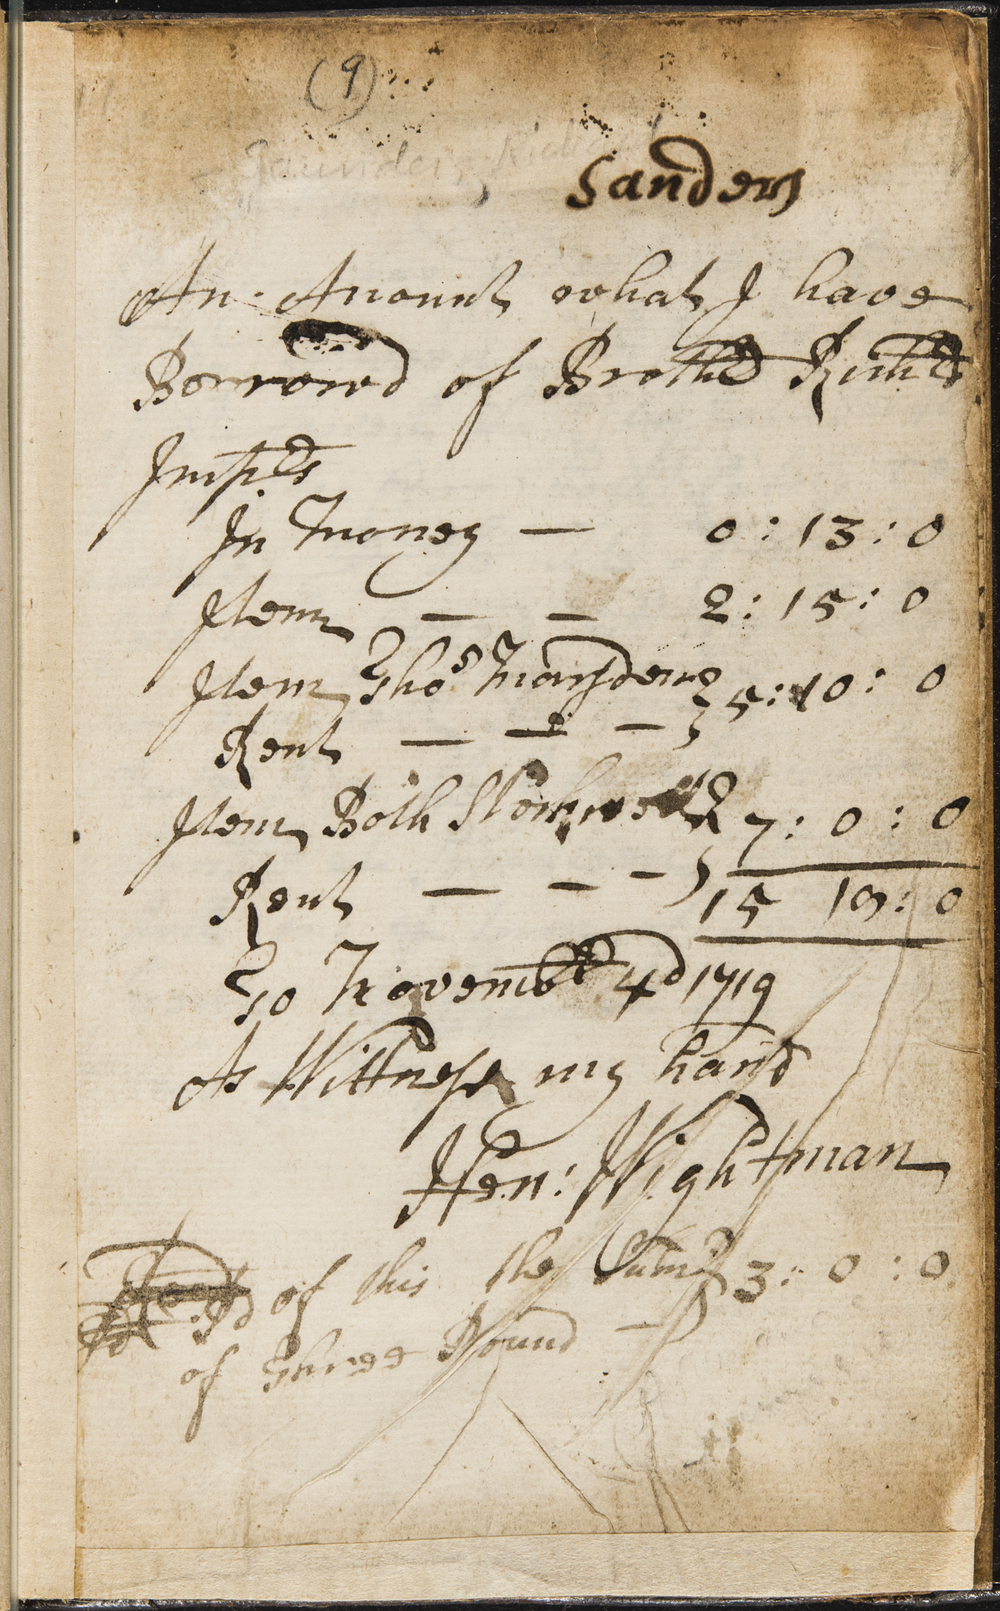 (9)
Saunders, Rich
Sanders
An Acount what I have
Borrowed of Brother Richd
Imprs
In Money — 0 : 13 : 0
Item — — 2 : 15 : 0
Item Thos Marsdens } 5 : 10 : 0
Rent — — —
Item Both Stockwells } 7 : 0 : 0
Rent — — — 15 18 : 0
To Novembr 4d 1719
As Wittness my hand
Hen: Wightman
Pd of this the Sum } 3 : 0 : 0
of Three Pound —